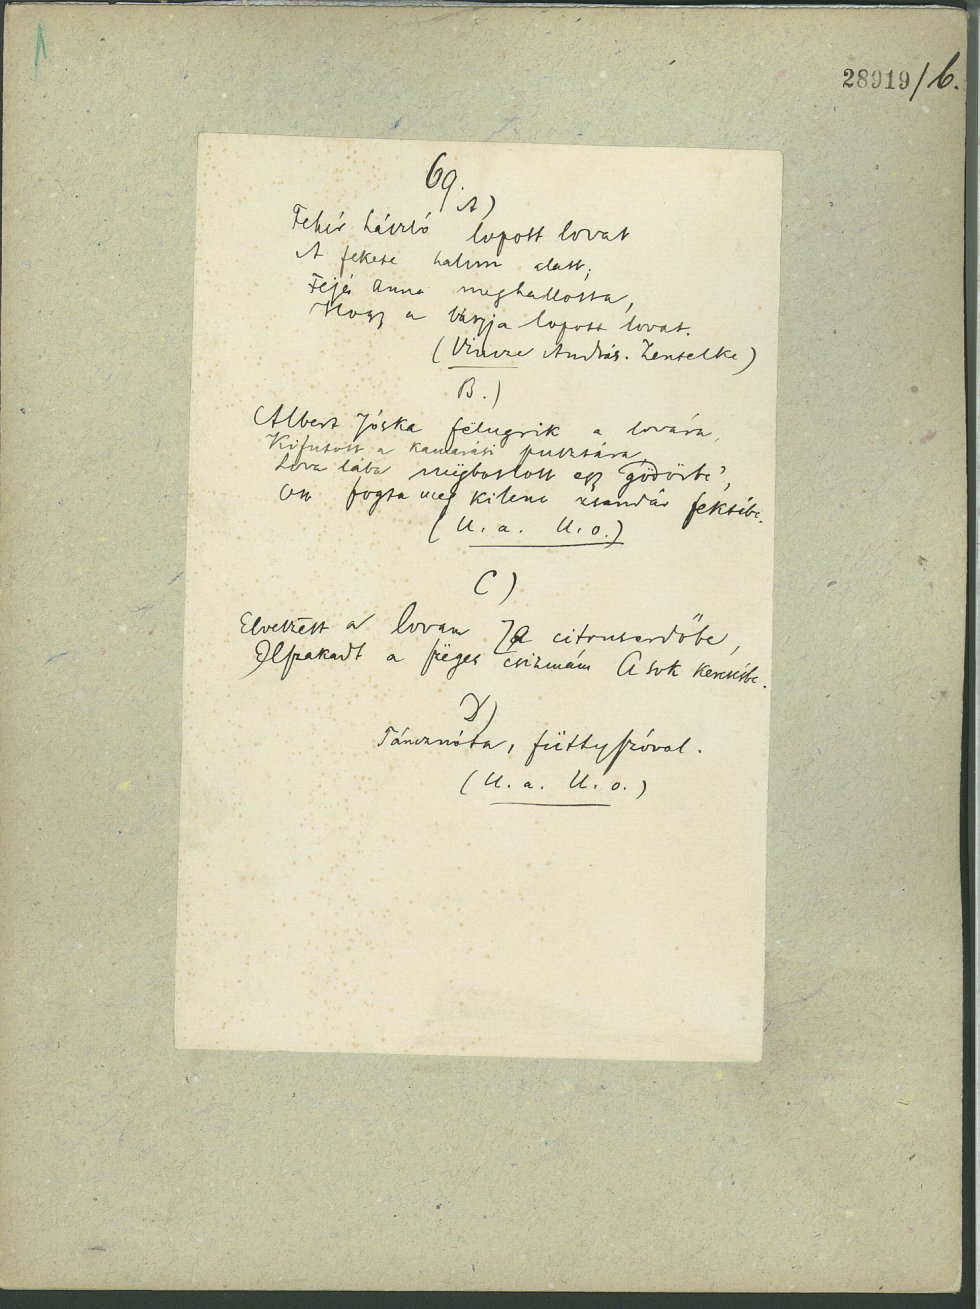 28919/b.
69.
A)
Fehér László lopott lovat
A fekete halom alatt;
Fejes Anna meghallotta,
Hogy a bátyja lopott lovat.
(Vincze András. Zentelke)
B.)
Albert Jóska felugrik a lovára,
Kifutott a kamarási pusztára,
Lova lába megbotlott egy gödörbe,
Ott fogta meg kilenc zsandár fektébe.
(U. a. U. o.)
C)
Elveszett a lovam Ja citruserdőbe,
Elszakadt a szeges csizmám A sok keresésbe.
D)
Táncznóta, füttyszóval.
(U. a. U. o.)